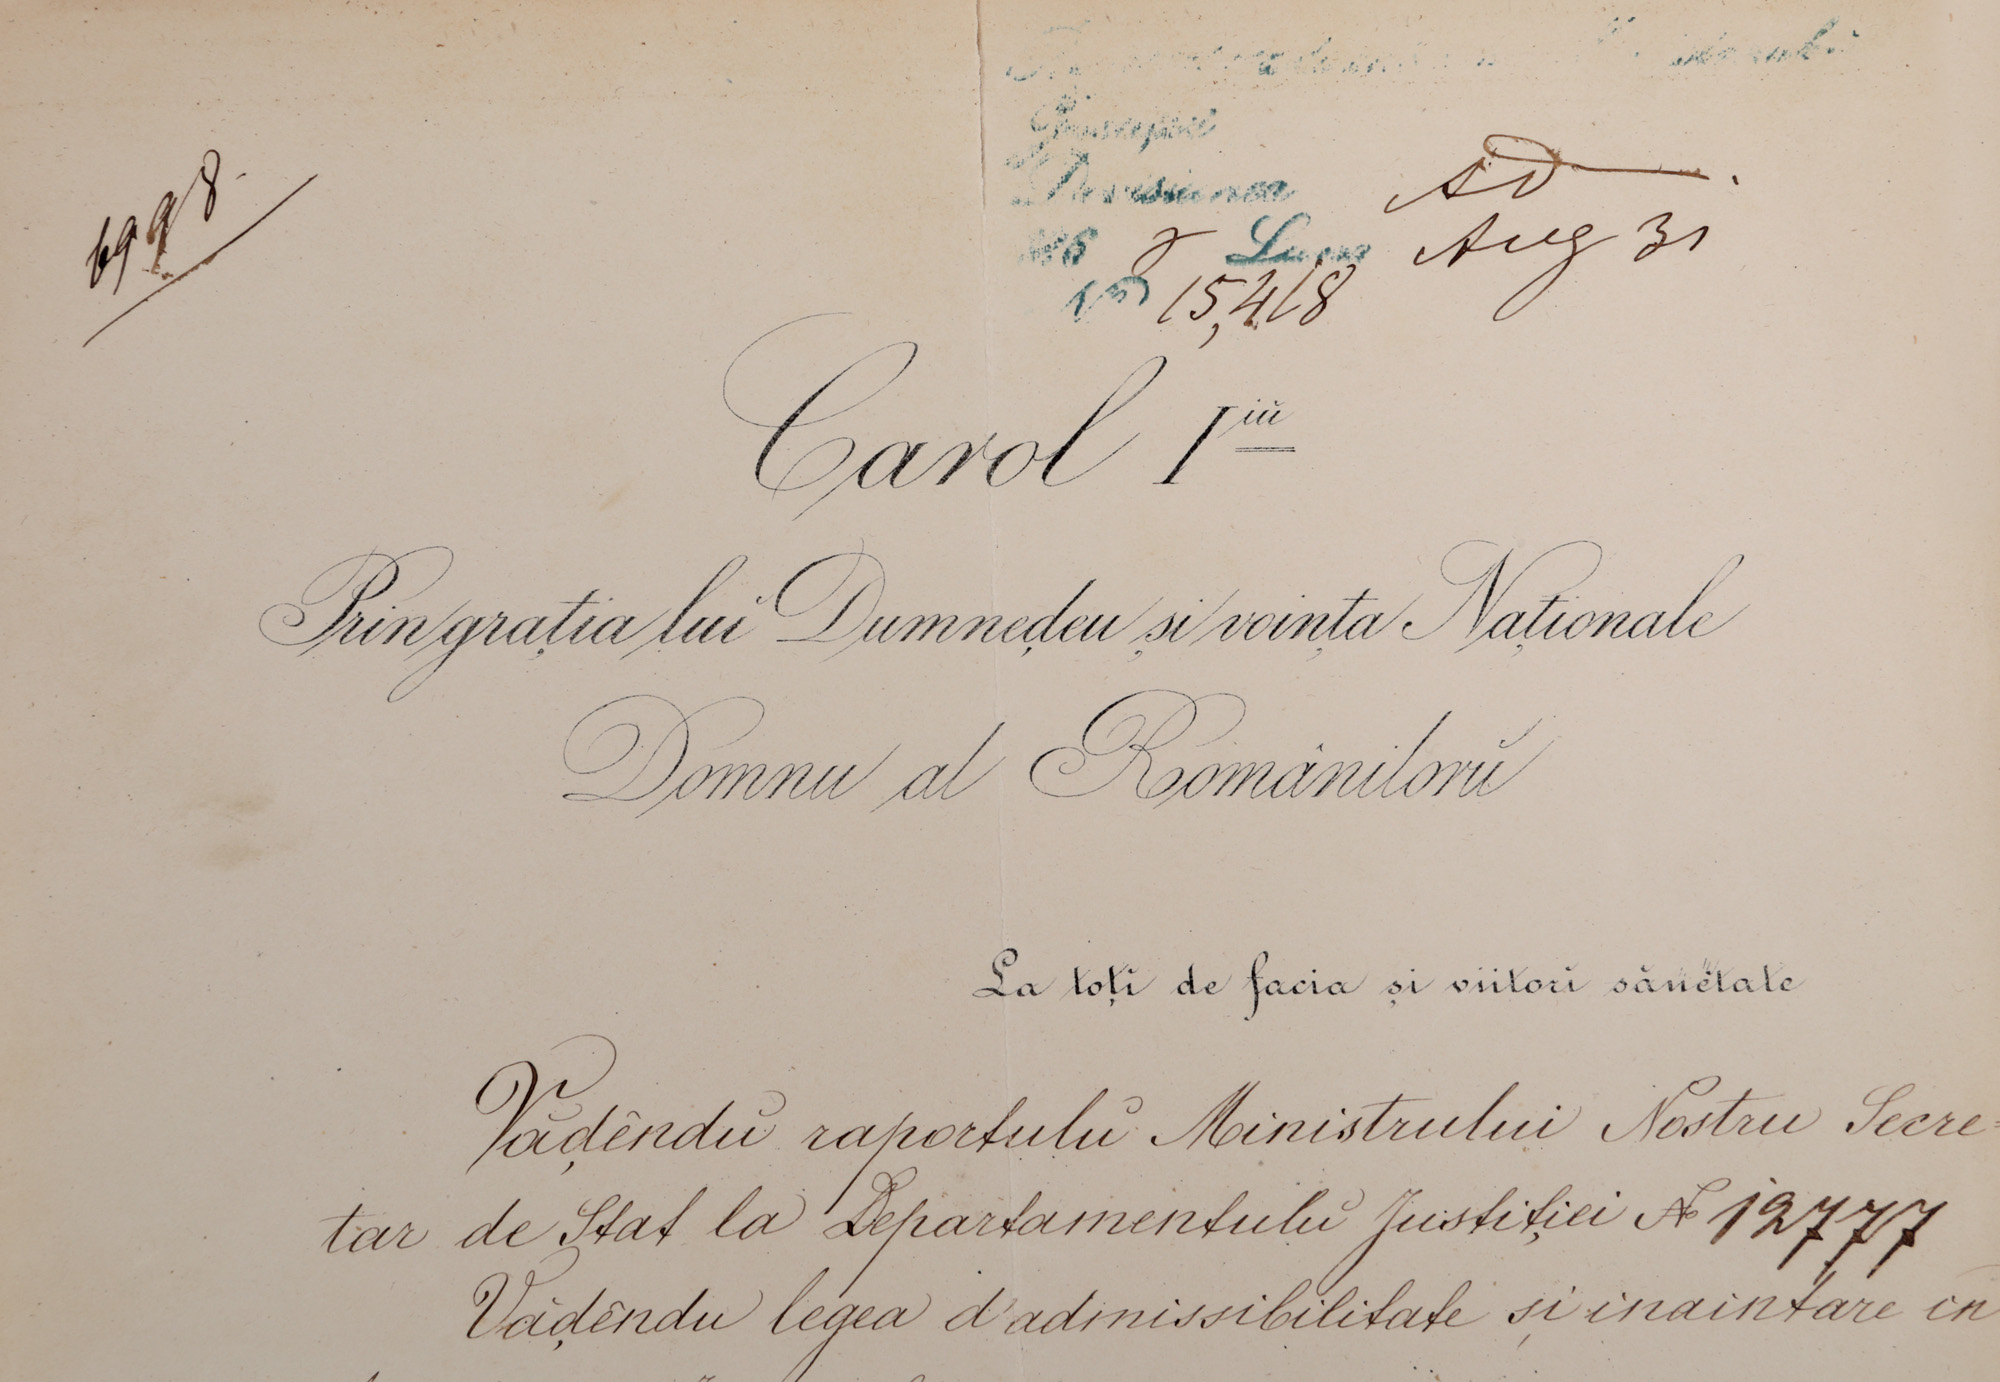 6998
Ad
Aug 31
15,418
Carol I iŭ
Prin grația lui Dumneḑeu și voința Naționale
Domnu al Româniloru̅
La toți de facia și viitori sănĕtate
Văḑêndŭ raportulŭ Ministrului Nostru Secre=
tar de Stat la Departamentulŭ Justiției No 12777
Văḑêndu legea d'admissibilitate și inaintare in